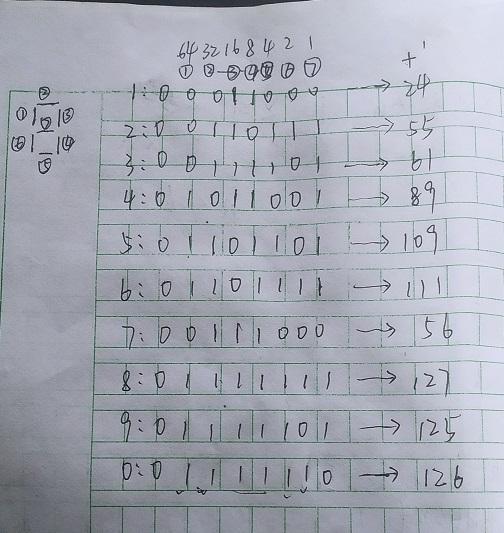 64 32 16 8 4 2 1
① ② ③ ④ ⑤ ⑥ ⑦ +
1: 0 0 0 1 1 0 0 0 → 24
2: 0 0 1 1 0 1 1 1 → 55
3: 0 0 1 1 1 1 0 1 → 61
4: 0 1 0 1 1 0 0 1 → 89
5: 0 1 1 0 1 1 0 1 → 109
6: 0 1 1 0 1 1 1 1 → 111
7: 0 0 1 1 1 0 0 0 → 56
8: 0 1 1 1 1 1 1 1 → 127
9: 0 1 1 1 1 1 0 1 → 125
0: 0 1 1 1 1 1 1 0 → 126